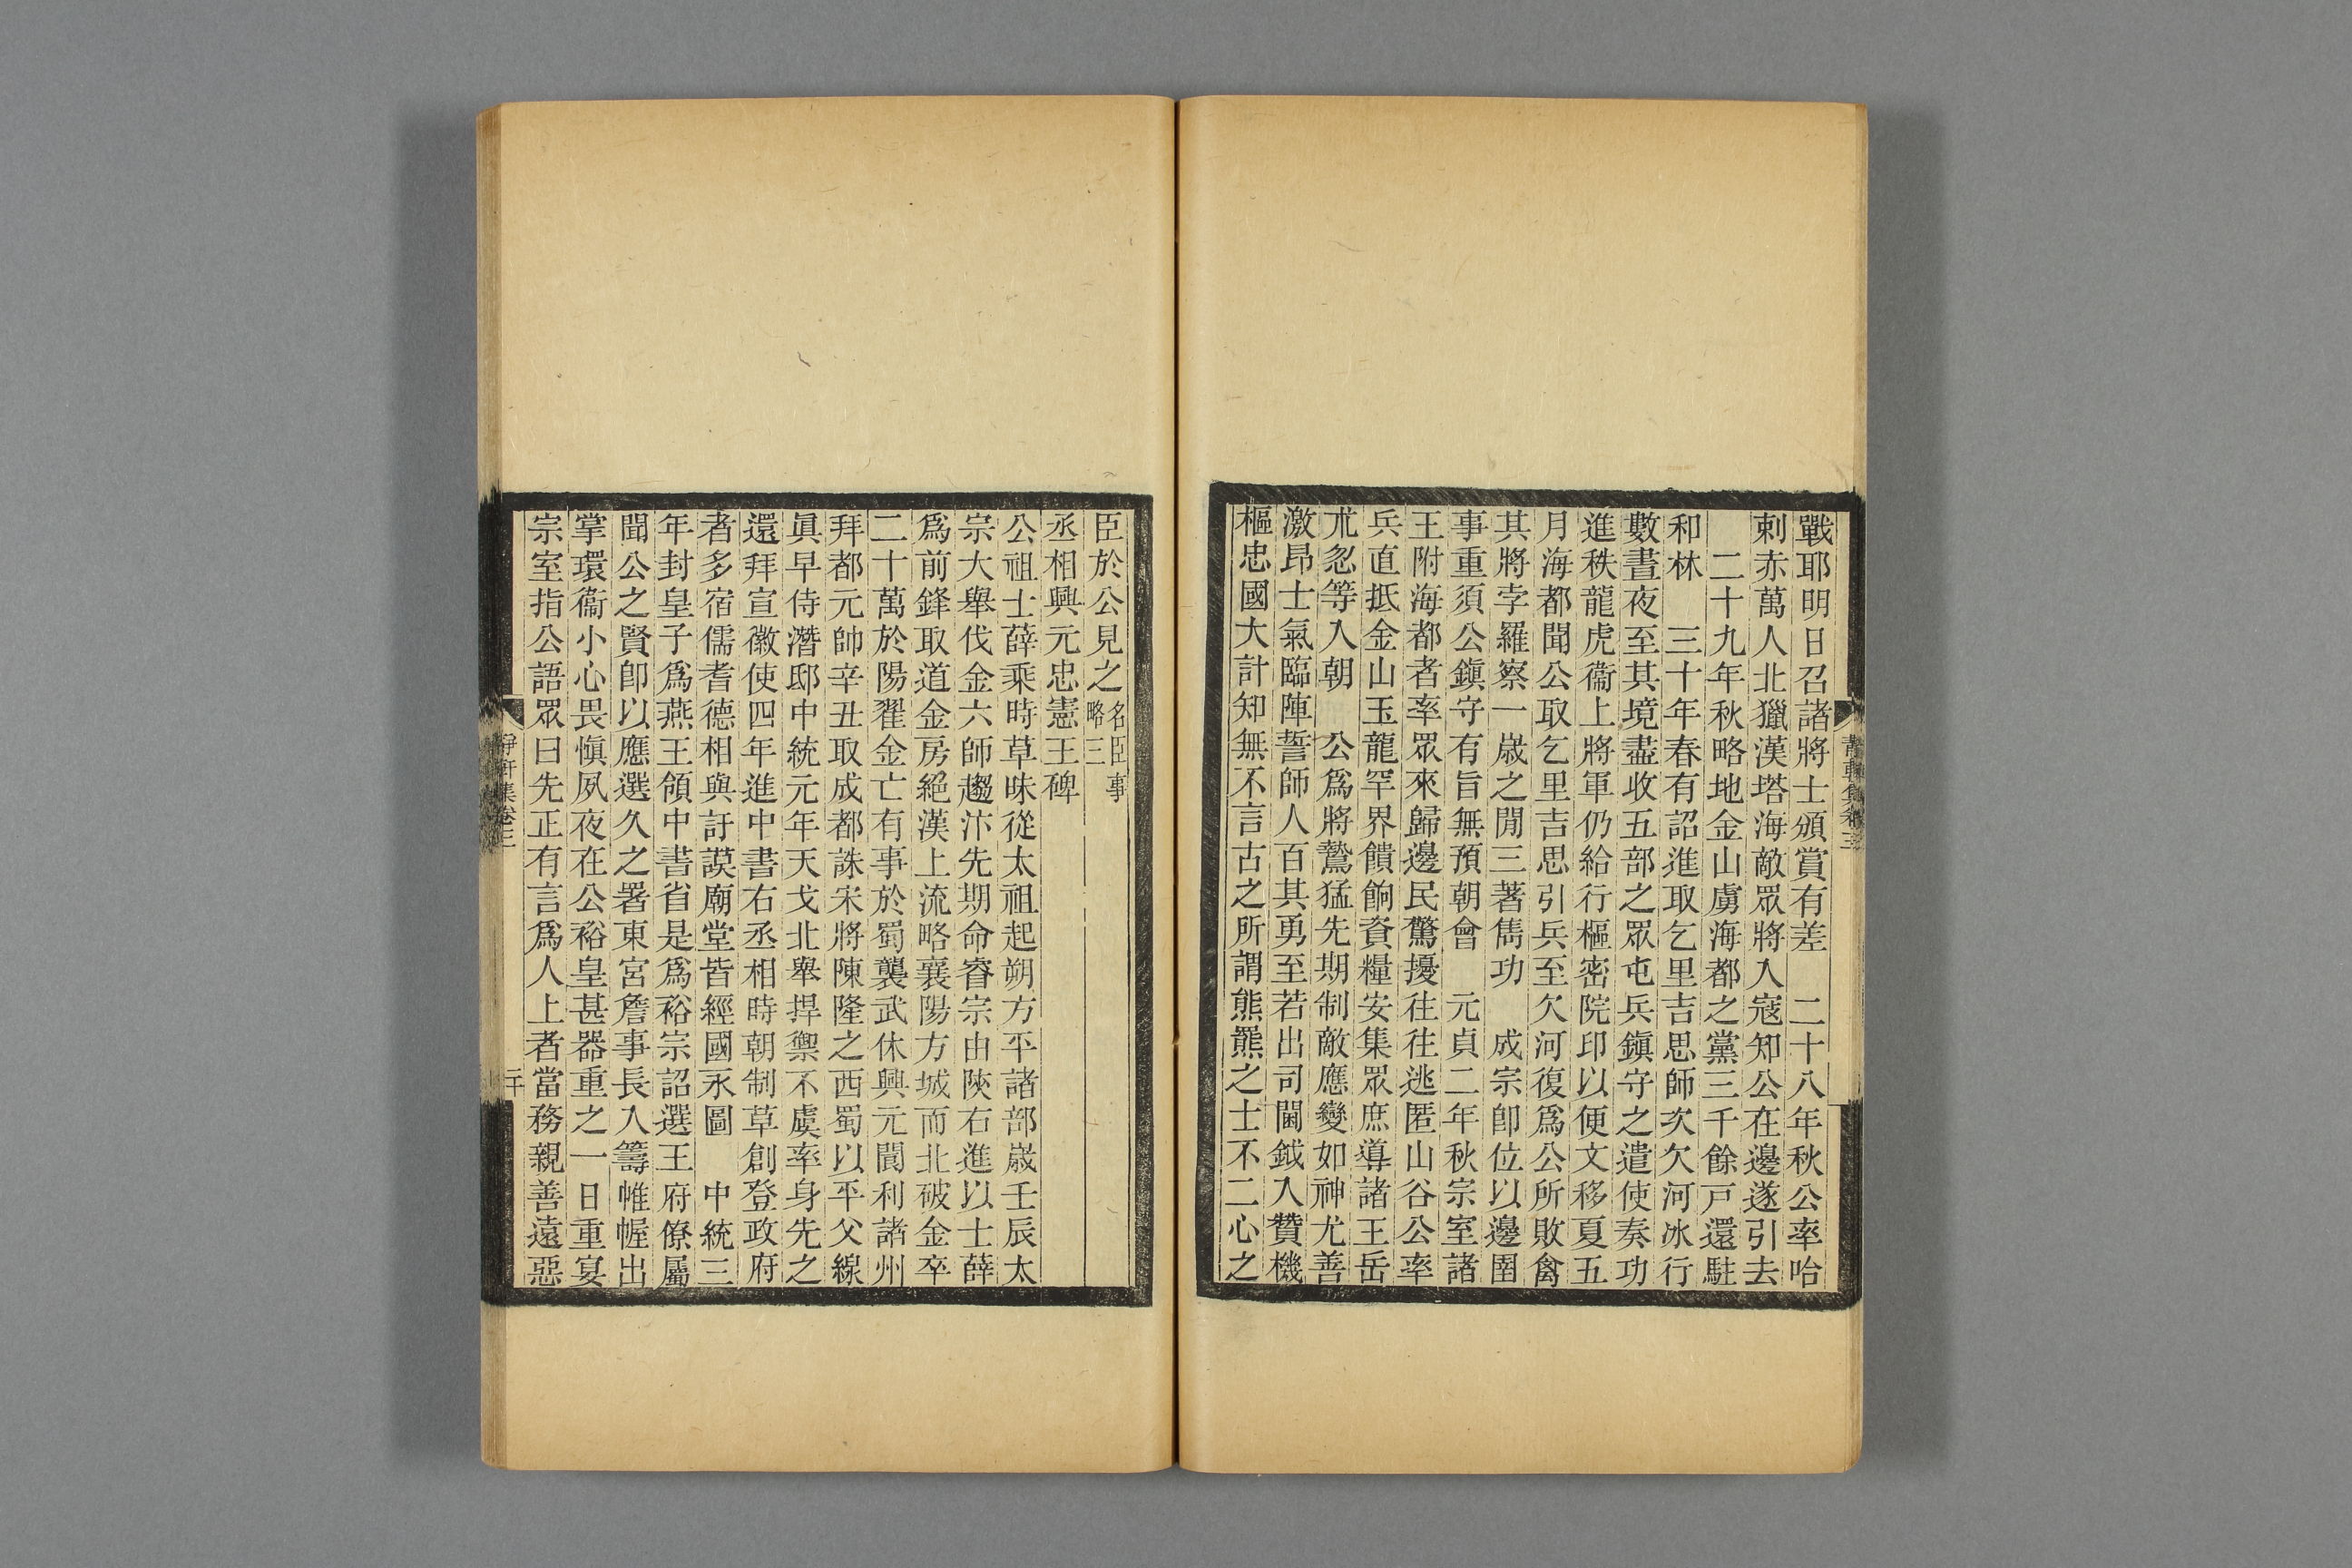 戰耶明日召諸將士頒賞有差　二十八年秋公率哈
剌赤萬人北獵漢塔海敵眾將入寇知公在邊遂引去
二十九年秋略地金山虜海都之黨三千餘戸還駐
和林　三十年春有詔進取乞里吉思師次欠河冰行
數晝夜至其境盡收五部之眾屯兵鎮守之遣使奏功
進秩龍虎衞上將軍仍給行樞密院印以便文移夏五
月海都聞公取乞里吉思引兵至欠河復爲公所敗禽
其將孛羅察一歲之閒三著雋功　成宗卽位以邊圉
事重須公鎭守有旨無預朝會　元貞二年秋宗室諸
王附海都者率眾來歸邊民驚擾往往逃匿山谷公率
兵直抵金山玉龍罕界饋餉資糧安集眾庶導諸王岳
朮忽等入朝　公爲將鷙猛先期制敵應變如神尤善
激昂士氣臨陣誓師人百其勇至若出司閫鉞入贊機
樞忠國大計知無不言古之所謂熊羆之士不二心之
靜軒集卷三
臣於公見之名臣事略三
丞相興元忠憲王碑
公祖士薛乘時草昧從太祖起朔方平諸部歲壬辰太
宗大舉伐金六師趨汴先期命睿宗由陝右進以士薛
爲前鋒取道金房絕漢上流略襄陽方城而北破金卒
二十萬於陽翟金亡有事於蜀襲武休興元閬利諸州
拜都元帥辛丑取成都誅宋將陳隆之西蜀以平父線
眞早侍潛邸中統元年天戈北舉捍禦不虞率身先之
還拜宣徽使四年進中書右丞相時朝制草創登政府
者多宿儒耆德相與訏謨廟堂皆經國永圖　中統三
年封皇子爲燕王領中書省是爲裕宗詔選王府僚屬
聞公之賢卽以應選久之署東宮詹事長入籌帷幄出
掌環衞小心畏愼夙夜在公裕皇甚器重之一日重宴
宗室指公語眾曰先正有言爲人上者當務親善遠惡
靜軒集卷三
二十